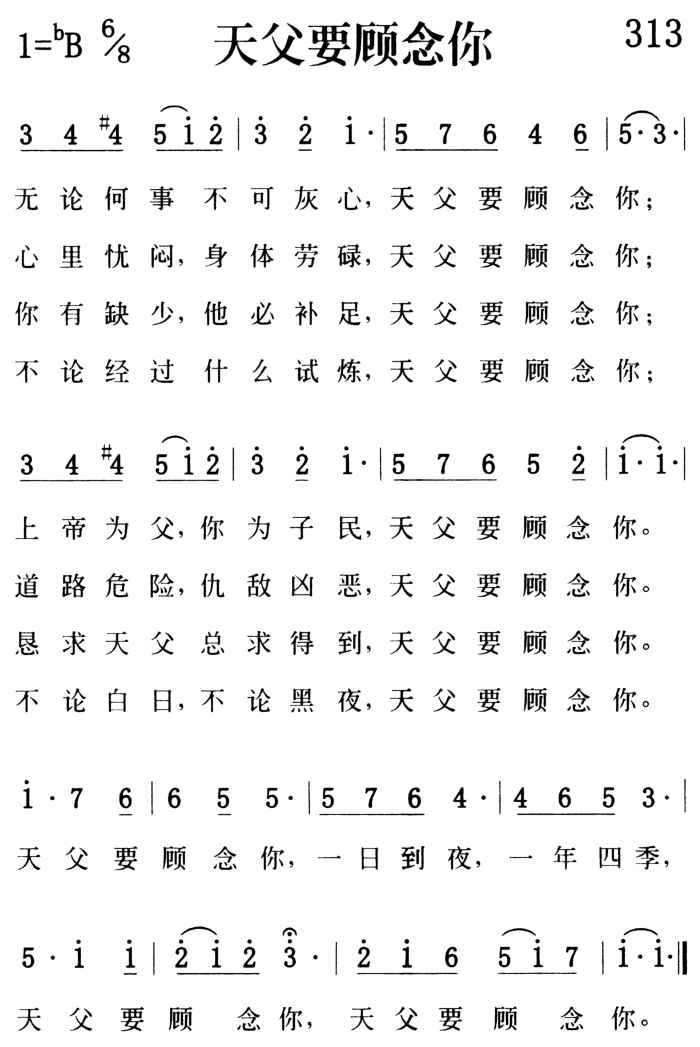 1=ᵇB 6/8 天父要顾念你 313
3 4 #4 5 i̇ 2̇ | 3̇ 2̇ i̇· | 5 7 6 4 6 | 5·3·|
无论何事不可灰心,天父要顾念你;
心里忧闷,身体劳碌,天父要顾念你;
你有缺少,他必补足,天父要顾念你;
不论经过什么试炼,天父要顾念你;
3 4 #4 5 i̇ 2̇ | 3̇ 2̇ i̇· | 5 7 6 5 2̇ | i̇·i̇·|
上帝为父,你为子民,天父要顾念你。
道路危险,仇敌凶恶,天父要顾念你。
恳求天父总求得到,天父要顾念你。
不论白日,不论黑夜,天父要顾念你。
i̇·7 6 | 6 5 5· | 5 7 6 4· | 4 6 5 3·|
天父要顾念你,一日到夜,一年四季,
5·i̇ i̇ | 2̇ i̇ 2̇ 3̇· | 2̇ i̇ 6 5 i̇ 7 | i̇·i̇·‖
天父要顾念你,天父要顾念你。